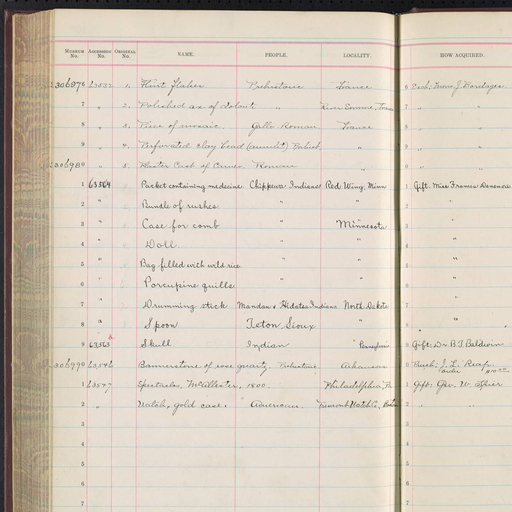 MUSEUM No. ACCESSION No. ORIGINAL No. NAME. PEOPLE. LOCALITY. HOW ACQUIRED.
306976 1. Flint flakes Prehistoric France
7 " 2. Polished ax of " River Somme,
8 " 3. Piece of mosaic Gallo Roman France "
9 " 4. Perforated clay bead " "
306980 " 5. Plaster Cast of Cameo Roman "
1 63564 Packet containing medicine Chippewa Indians Red Wing, Minn 1 Gift. Miss Frances Densmore
2 " Bundle of rushes " " 2 "
3 " Case for comb " Minnesota 3 "
4 " Doll " " 4 "
5 " Bag filled with wild rice " " 5 "
6 " Porcupine quills " " 6 "
7 " Drumming stick Mandan & Hidatsa Indians North Dakota 7 "
8 " Spoon Teton Sioux " 8 "
9 63563 Skull Indian 9 Gift: Dr. B.T. Baldwin
306990 63546 Bannerstone of rose quartz. Prehistoric Arkansas 0 Purch: J. L.
1 63547 Spectacles McAllester, 1800. Philadelphia, Pa 1 Gift: Geo. W. Spier
2 " Watch, gold case. American. Watch Co, 2 "
3
4
5
6
7